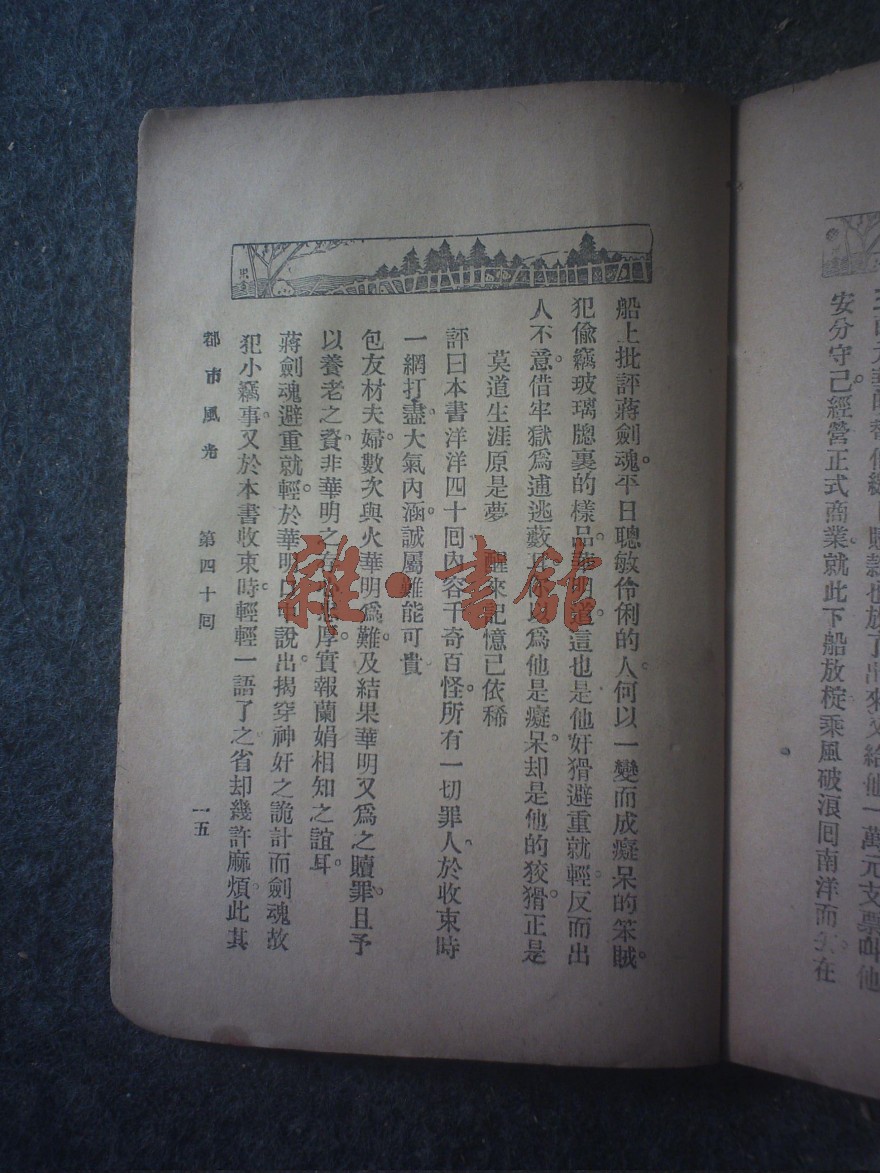 安分守己經營正式商業。就此下船放椗乘風破浪回南洋而去。在
船上批評蔣劍魂。平日聰敏伶俐的人。何以一變而成癡呆的笨賊。
犯偷竊玻璃牕裏的樣品。華明道。這也是他奸猾避重就輕。反而出
人不意。借牢獄爲逋逃藪。以爲他是癡呆。却是他的狡猾。正是
莫道生涯原是夢　醒來記憶已依稀
評曰本書洋洋四十回。內容千奇百怪。所有一切罪人。於收束時
一網打盡。大氣內涵。誠屬難能可貴
包友材夫婦。數次與火華明爲難。及結果華明又爲之贖罪。且予
以養老之資。非華明之存心忠厚。實報蘭娟相知之誼耳。
蔣劍魂避重就輕。於華明口中說出。揭穿神奸之詭計。而劍魂故
犯小竊事。又於本書收束時。輕輕一語了之。省却幾許麻煩。此其
都市風光　第四十回　一五
雜·書館